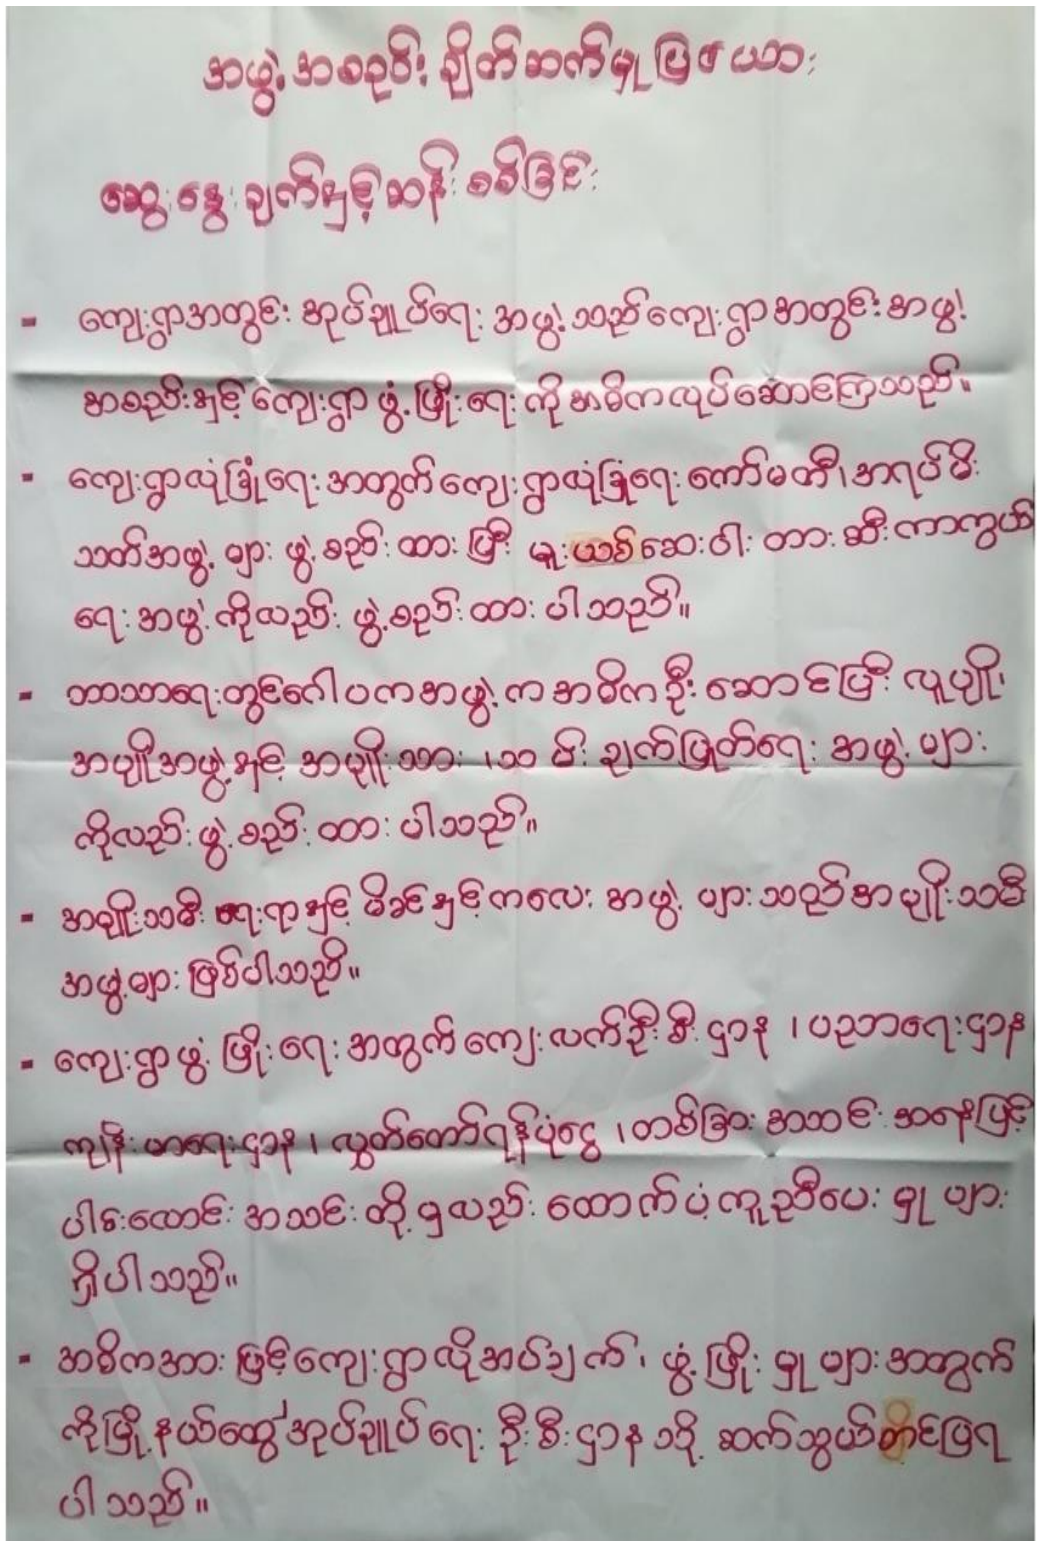 အဖွဲ့အစည်းချိတ်ဆက်မှုပြဇယား
ဆွေးနွေးချက်နှင့်ဆန်းစစ်ခြင်း
- ကျေးရွာအတွင်း အုပ်ချုပ်ရေး အဖွဲ့သည်ကျေးရွာအတွင်းအဖွဲ့
အစည်းနှင့် ကျေးရွာ ဖွံ့ဖြိုးရေးကို အဓိကလုပ်ဆောင်ကြသည်။
- ကျေးရွာလုံခြုံရေးအတွက် ကျေးရွာလုံခြုံရေး ကော်မတီ၊ အရပ်မီး
သတ်အဖွဲ့များ ဖွဲ့စည်းထားပြီး မူးယစ်ဆေးဝါး တားဆီးကာကွယ်
ရေးအဖွဲ့ကိုလည်း ဖွဲ့စည်းထားပါသည်။
- ဘာသာရေးတွင်ဂေါပကအဖွဲ့က အဓိကဦးဆောင်ပြီး လူပျို၊
အပျိုအဖွဲ့နှင့် အမျိုးသား၊သမီး ချက်ပြုတ်ရေး အဖွဲ့များ
ကိုလည်းဖွဲ့စည်းထားပါသည်။
- အမျိုးသမီးရေးရာနှင့် မိခင်နှင့်ကလေး အဖွဲ့များသည် အမျိုးသမီး
အဖွဲ့များဖြစ်ပါသည်။
- ကျေးရွာဖွံ့ဖြိုးရေးအတွက် ကျေးလက်ဦးစီးဌာန၊ ပညာရေးဌာန
ကျန်းမာရေးဌာန၊ လွှတ်တော်ရန်ပုံငွေ၊တစ်ခြား အသင်းအနေဖြင့်
ပါင်းလောင်းအသင်းတို့မှလည်း ထောက်ပံ့ကူညီပေးမှုများ
ရှိပါသည်။
- အဓိကအားဖြင့်ကျေးရွာလိုအပ်ချက်၊ ဖွံ့ဖြိုးမှုများအတွက်
ကိုမြို့နယ်ထွေအုပ်ချုပ်ရေးဦးစီးဌာနသို့ ဆက်သွယ်တိုင်ပြရ
ပါသည်။